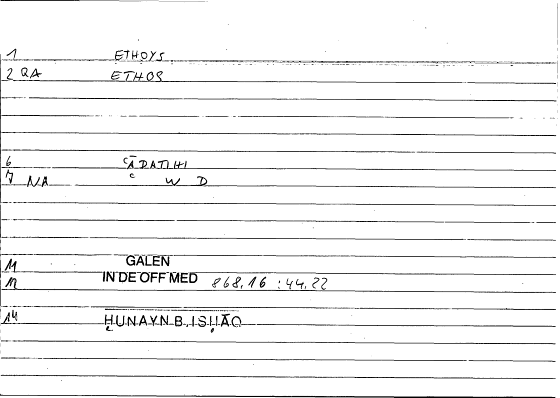 1 ETHOYS
2 QA ETHOS
6 ʿĀDATIHI
7 NA ʿ W D
11 GALEN
12 IN DE OFF MED 868,16 : 44,22
14 ḤUNAYN B. ISḤĀQ